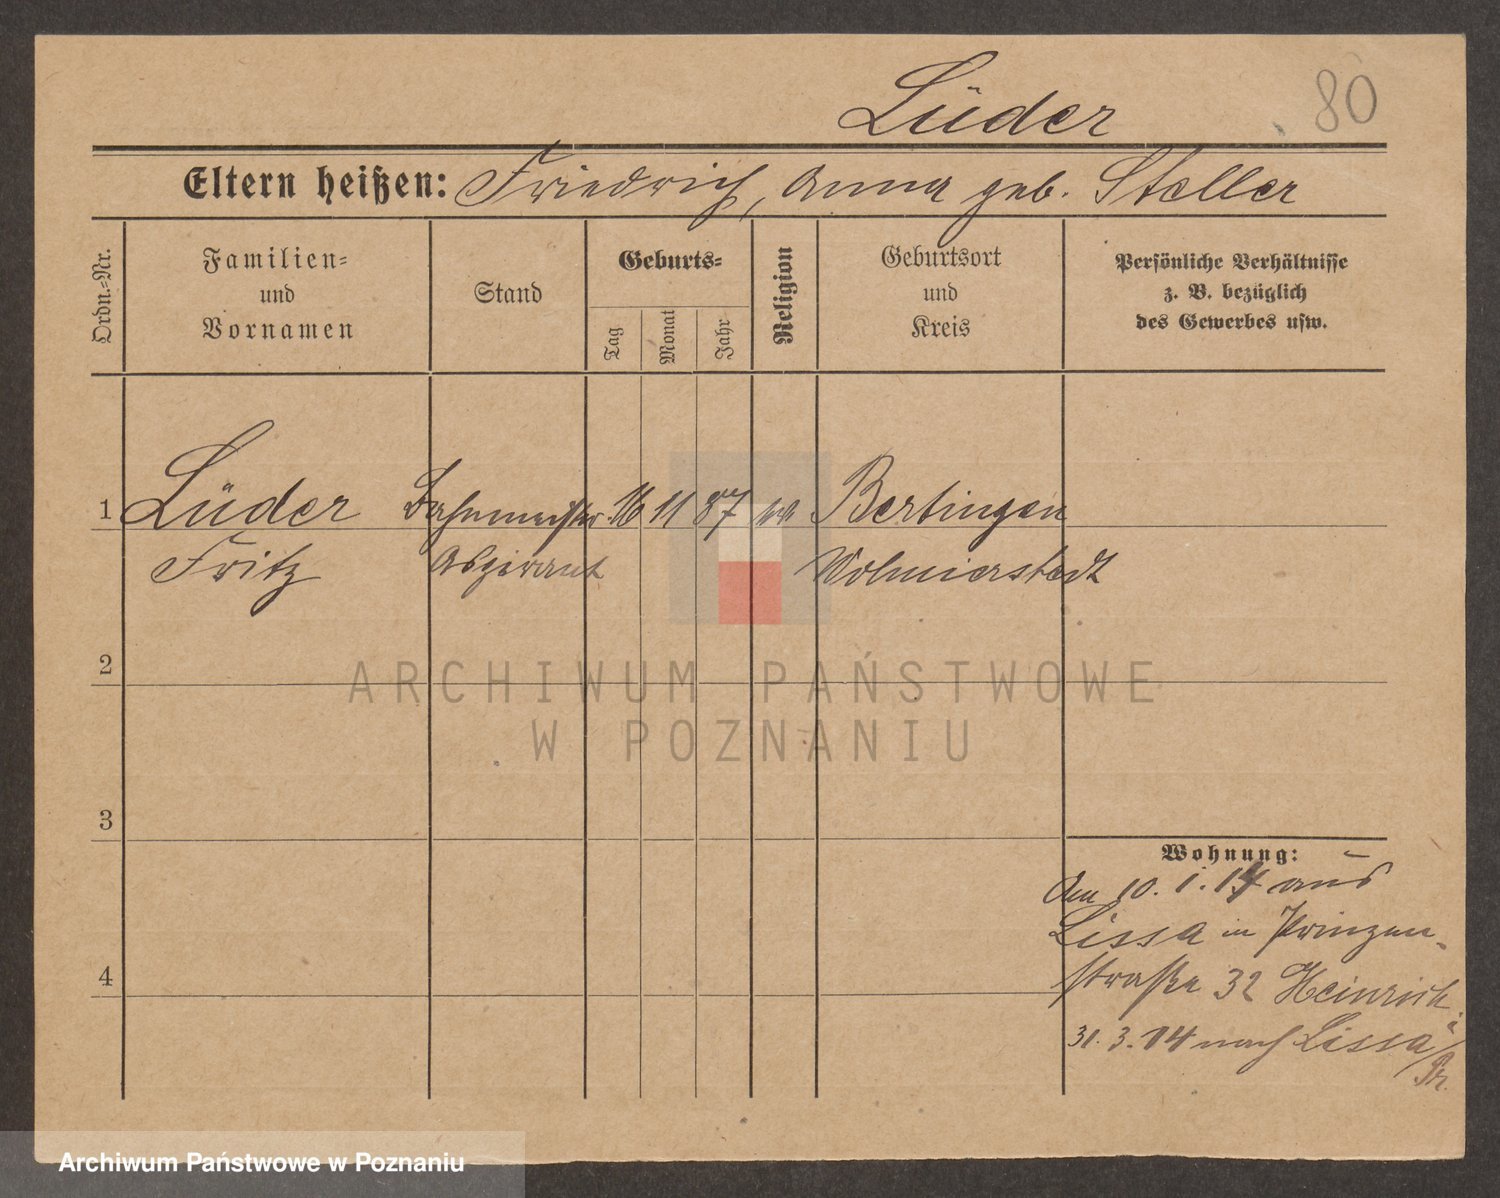 80
Lüder
Eltern heißen: Friedrich, Anna geb. Steller
Ordn.=Nr.
Familien=
und
Vornamen
Stand
Geburts=
Tag
Monat
Jahr
Religion
Geburtsort
und
Kreis
Persönliche Verhältnisse
z. B. bezüglich
des Gewerbes usw.
1 Lüder Bahnmeister 16 11 87 ev Bertingen
Fritz Aspirant Wolmierstedt
2
3
4
Wohnung:
Am 10. 1. 14 aus
Lissa in Prinzen-
straße 32 Heinrich
31. 3. 14 nach Lissa
ARCHIWUM PAŃSTWOWE
W POZNANIU
Archiwum Państwowe w Poznaniu